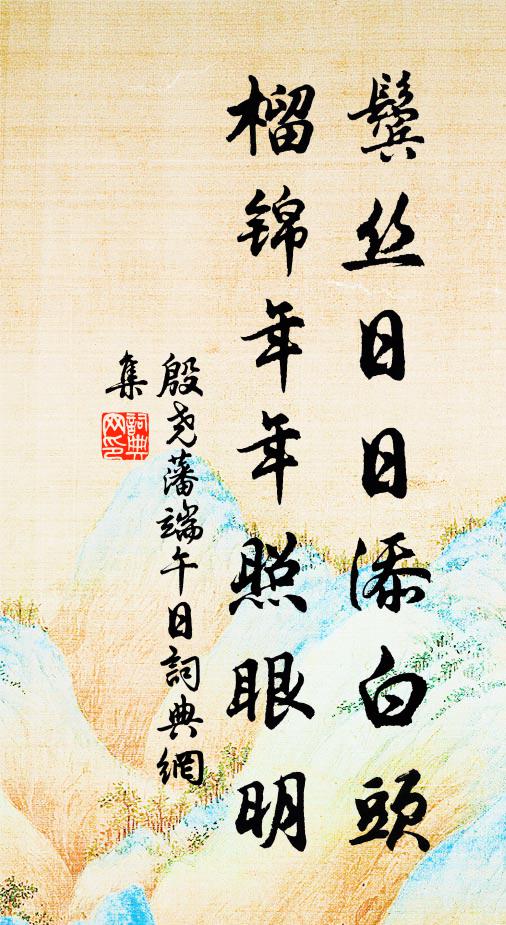 鬓丝日日添白頭
榴锦年年照眼明
殷尧藩端午日詞典網
集
詞典
网印